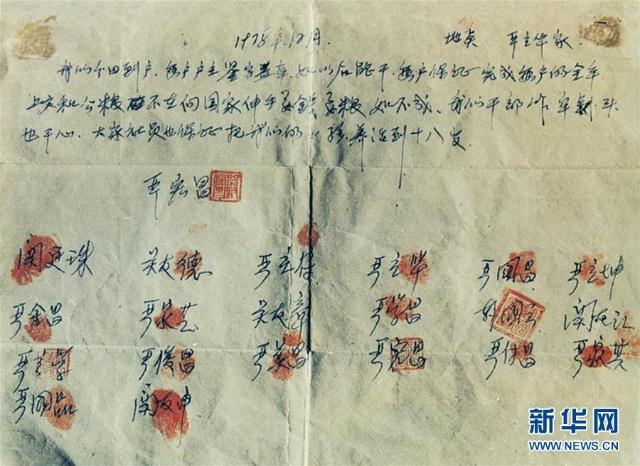 1978年12月 地点 严立华家
我们分田到户，每户户主签字盖章，如以后能干，每户保证完成每户的全年
上交和公粮，不在向国家伸手要钱要粮，如不成，我们干部作牢刹头
也干心，大家社员也保证把我们的小孩养活到十八岁。
严宏昌
关廷珠 关友德 严立符 严立华 严国昌 严立坤
严金昌 严家芝 关友章 严学昌 韩国云 关友江
严立学 严俊昌 严美昌 严宏昌 严付昌 严家其
严国品 关友申
新华网
WWW.NEWS.CN